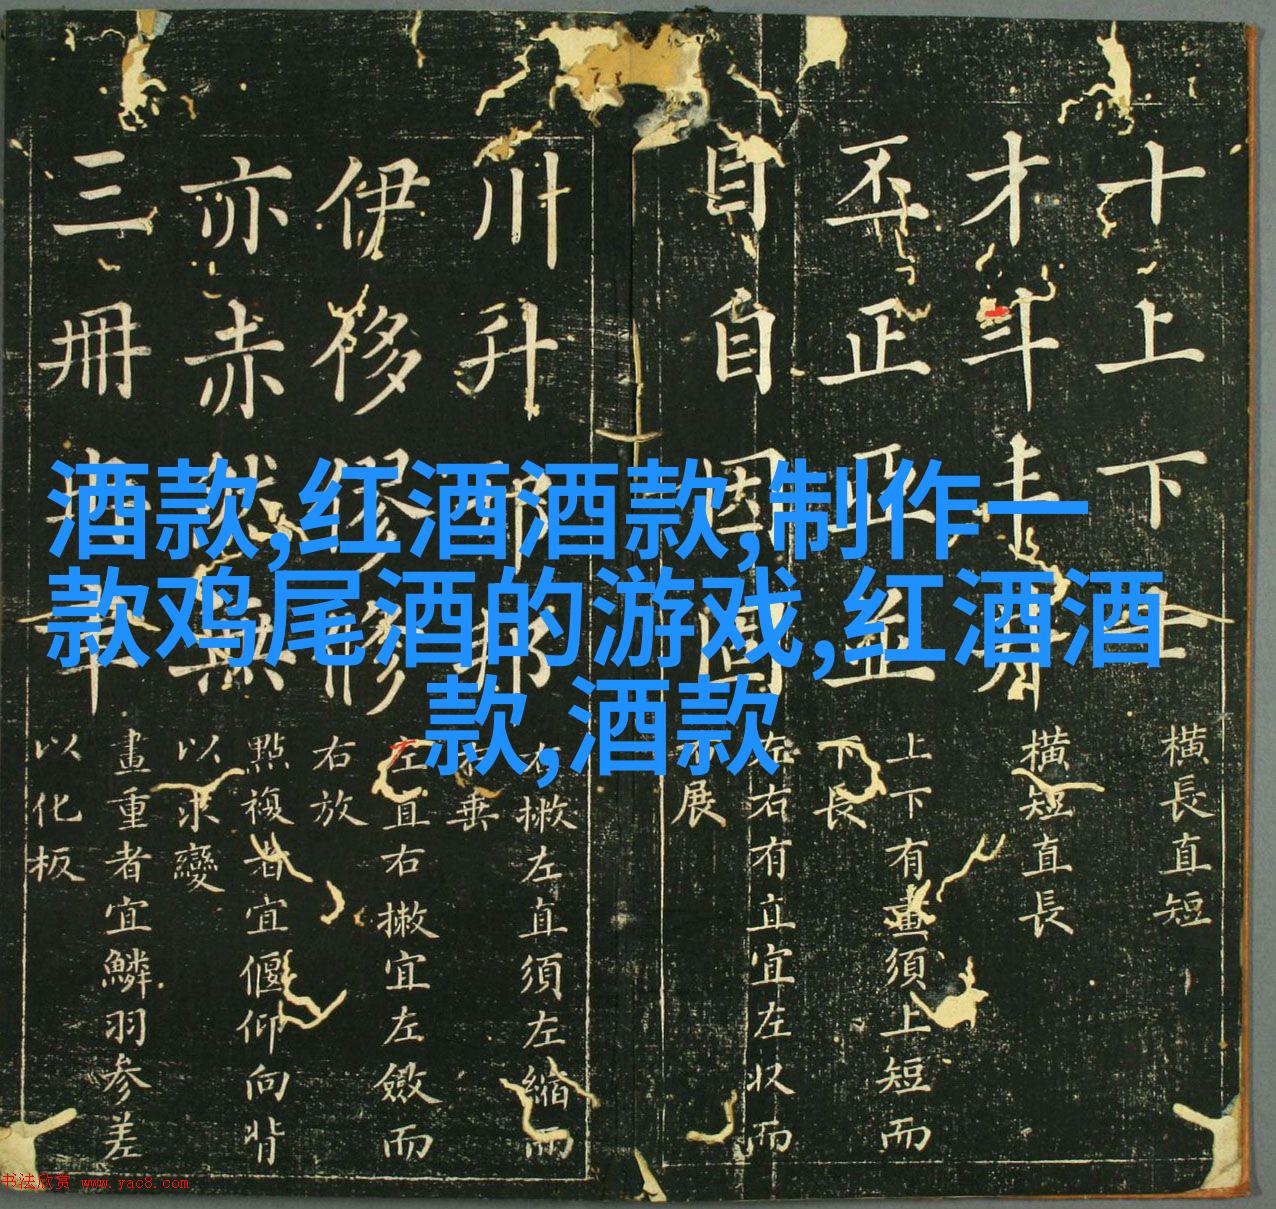 酒款,红酒酒款,制作一
款鸡尾酒的游戏,红酒酒
款,酒款
十上下
橫長直短
才斗
橫短直長
丕正亞並
上下有畫須上短而
下長
目自因固
左右有直宜左收而
展
川升邦
右撇左直須左縮而
垂
伊侈修
左直右撇宜左斂而
右放
亦赤然無
點複者宜偃仰向背
以求變
三冊
畫重者宜鱗羽参差
以化板
书法欣赏 www.yac8.com